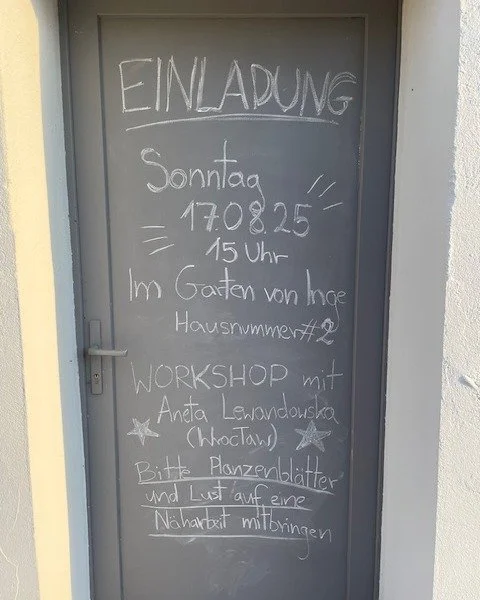 EINLADUNG
Sonntag
17.08.25
15 Uhr
Im Garten von Inge
Hausnummer #2
WORKSHOP mit
Aneta Lewandowska
(Wrocław)
Bitte Planzenblätter
und Lust auf eine
Näharbeit mitbringen